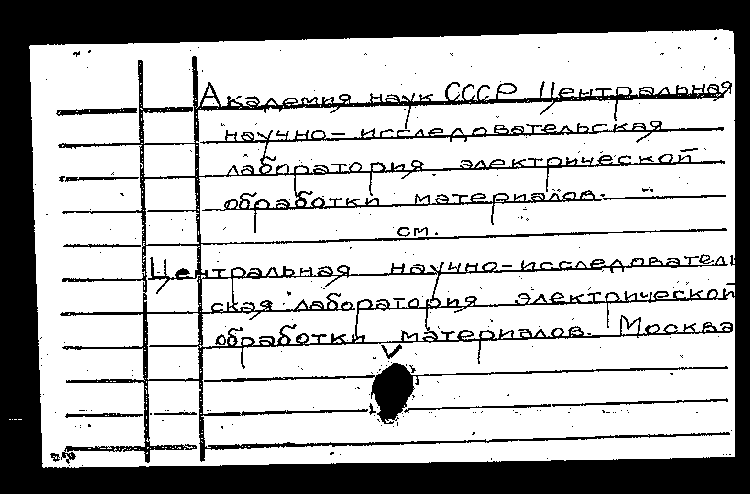 Академия наук СССР Центральная
научно-исследовательская
лаборатория электрической
обработки материалов.
см.
Центральная научно-исследователь
ская лаборатория электрической
обработки материалов. Москва